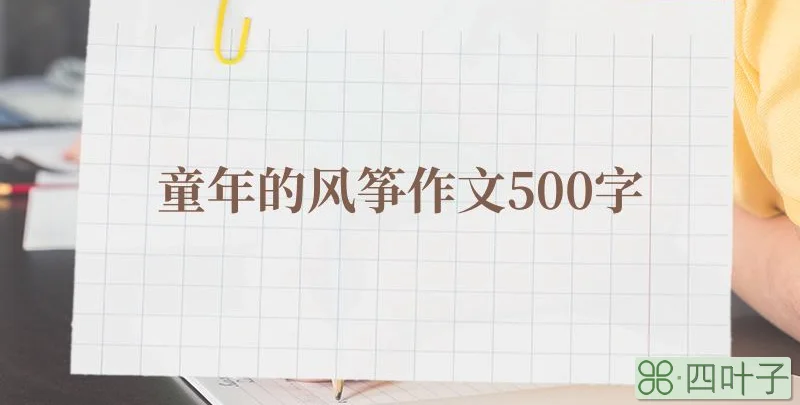 童年的风筝作文500字
四叶子